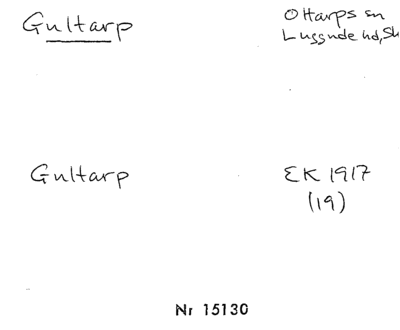 Gultarp
Ottarps sn
Luggude hd, Sk
Gultarp
EK 1917
(19)
Nr 15130